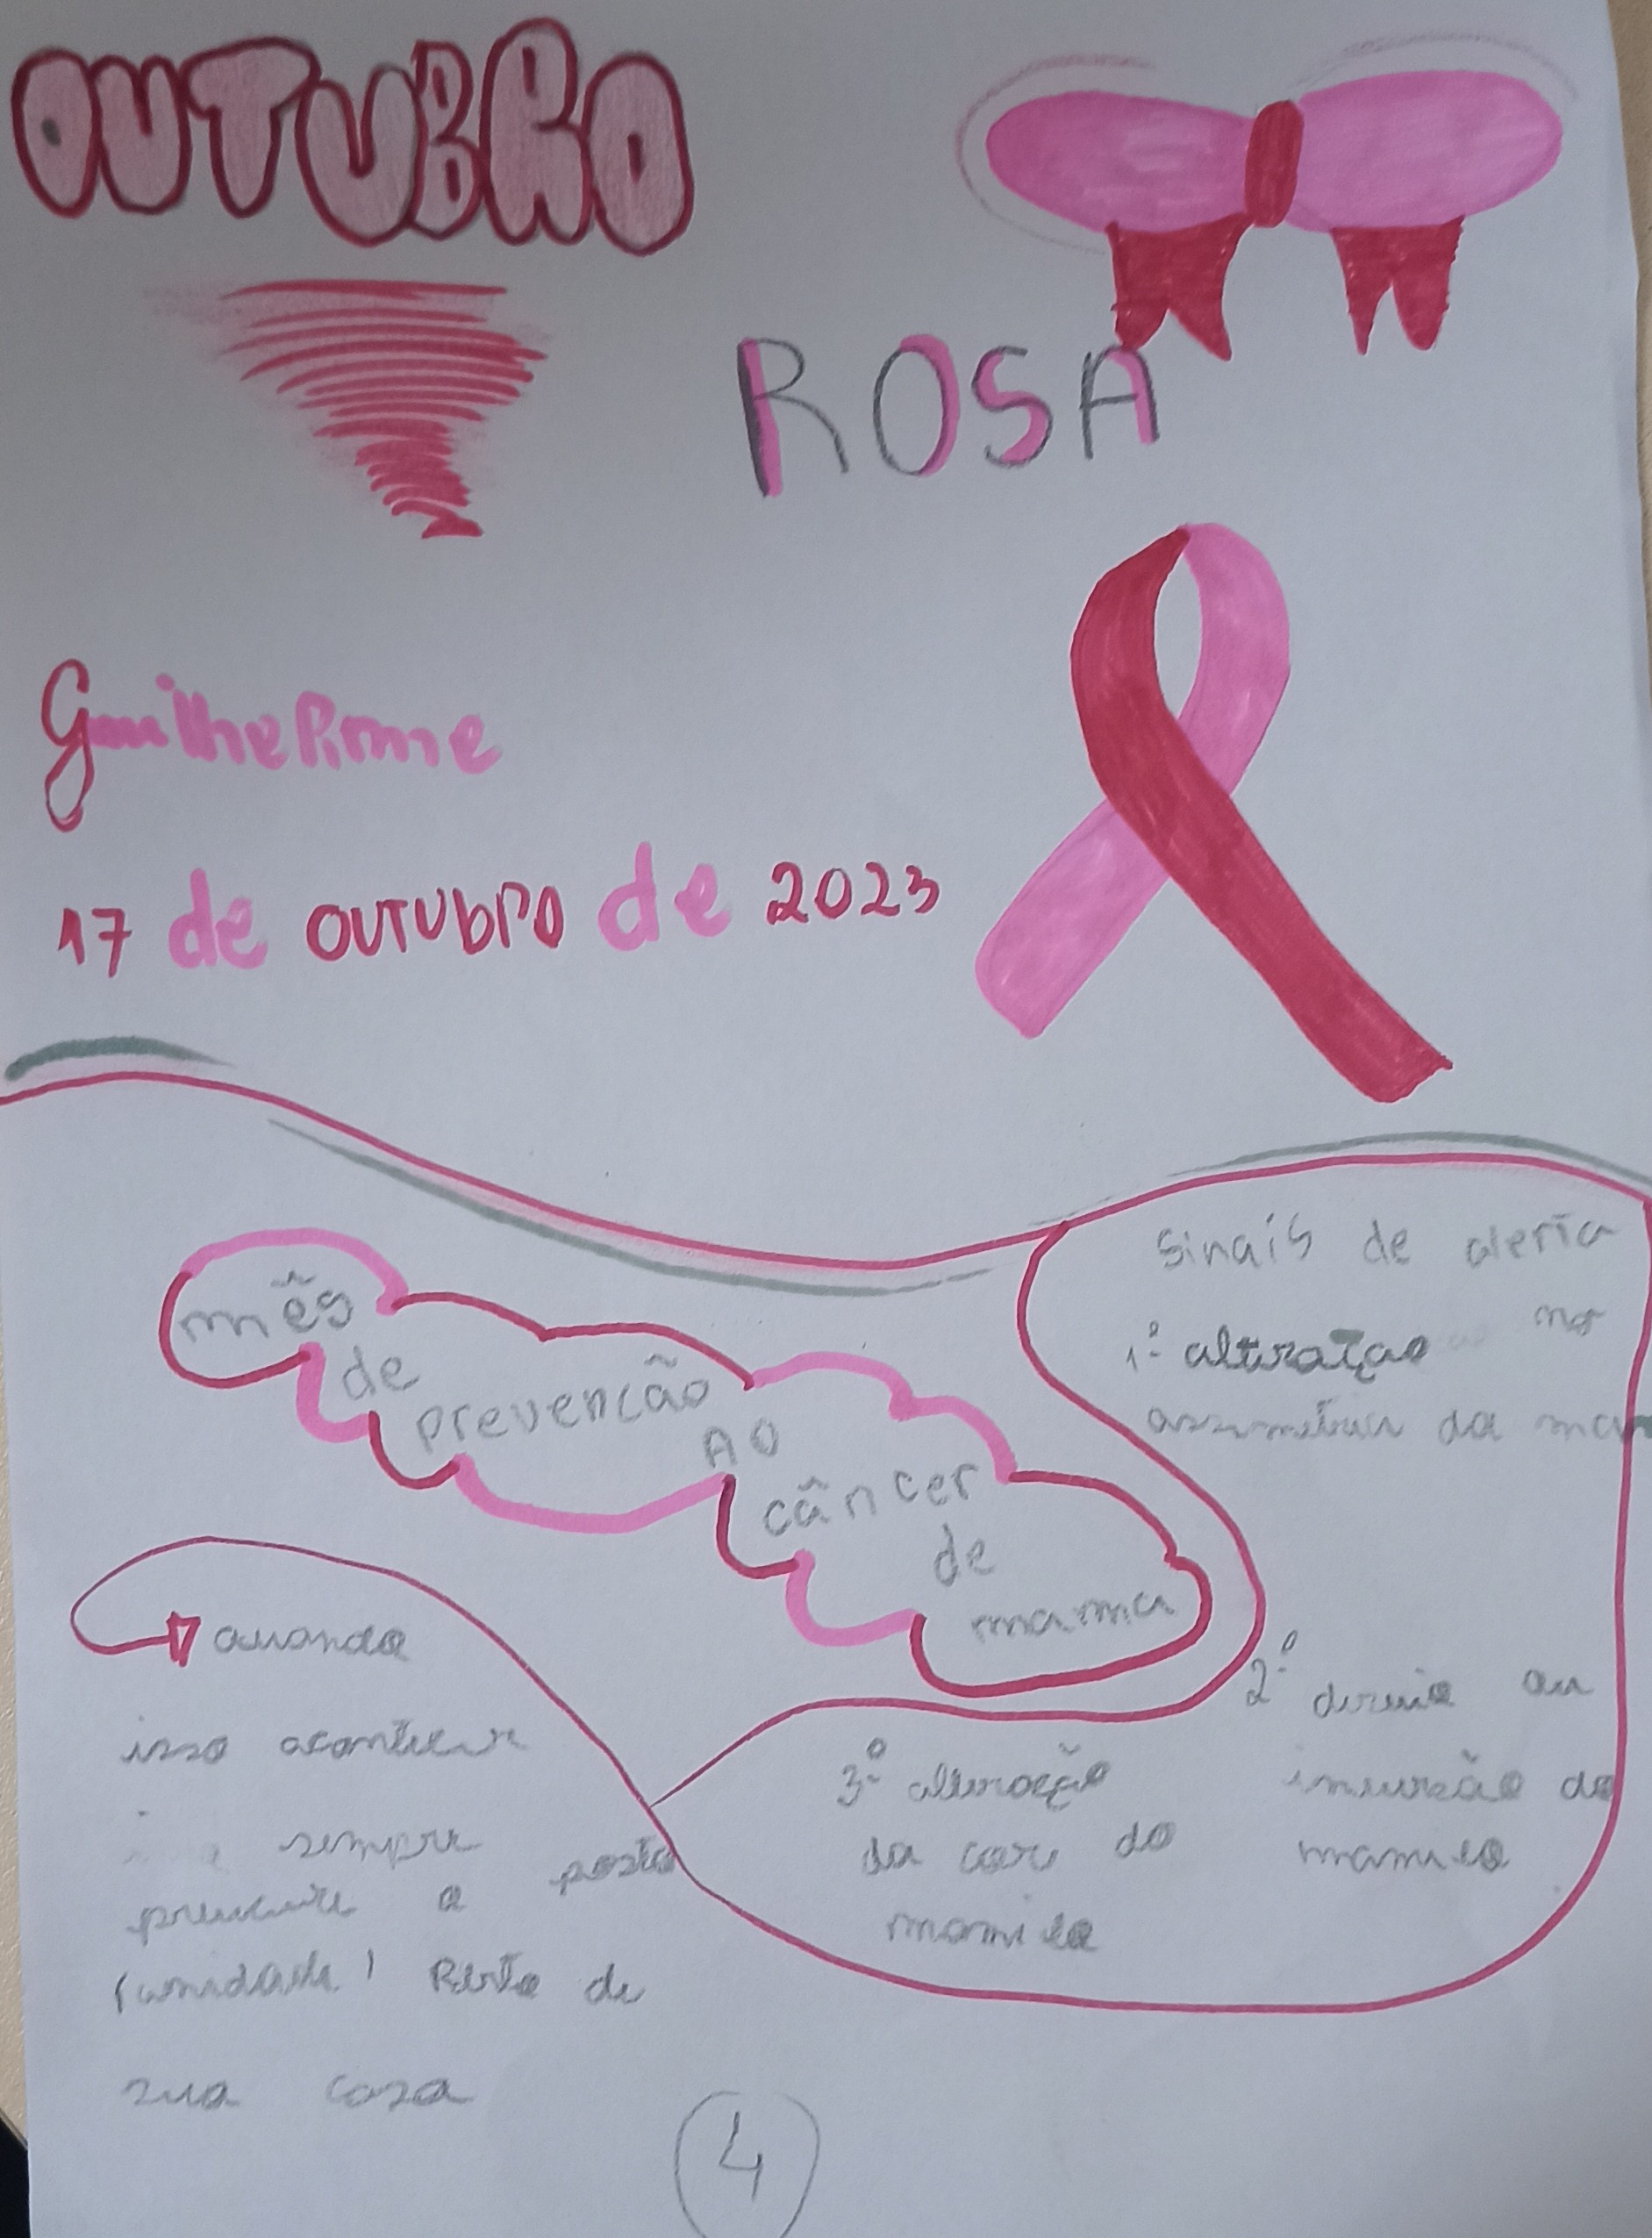 OUTUBRO
ROSA
Guilherme
17 de OUTUBRO de 2023
mês
de
prevencão
AO
câncer
de
mama
Sinais de alerta
1º alteraçao na
assimetria da mam
2º
ou
inversão do
mamilo
3º alteração
da cor do
mamilo
quando
isso acontecer
sempre
procure o posto
(unidade) Perto de
sua casa
4